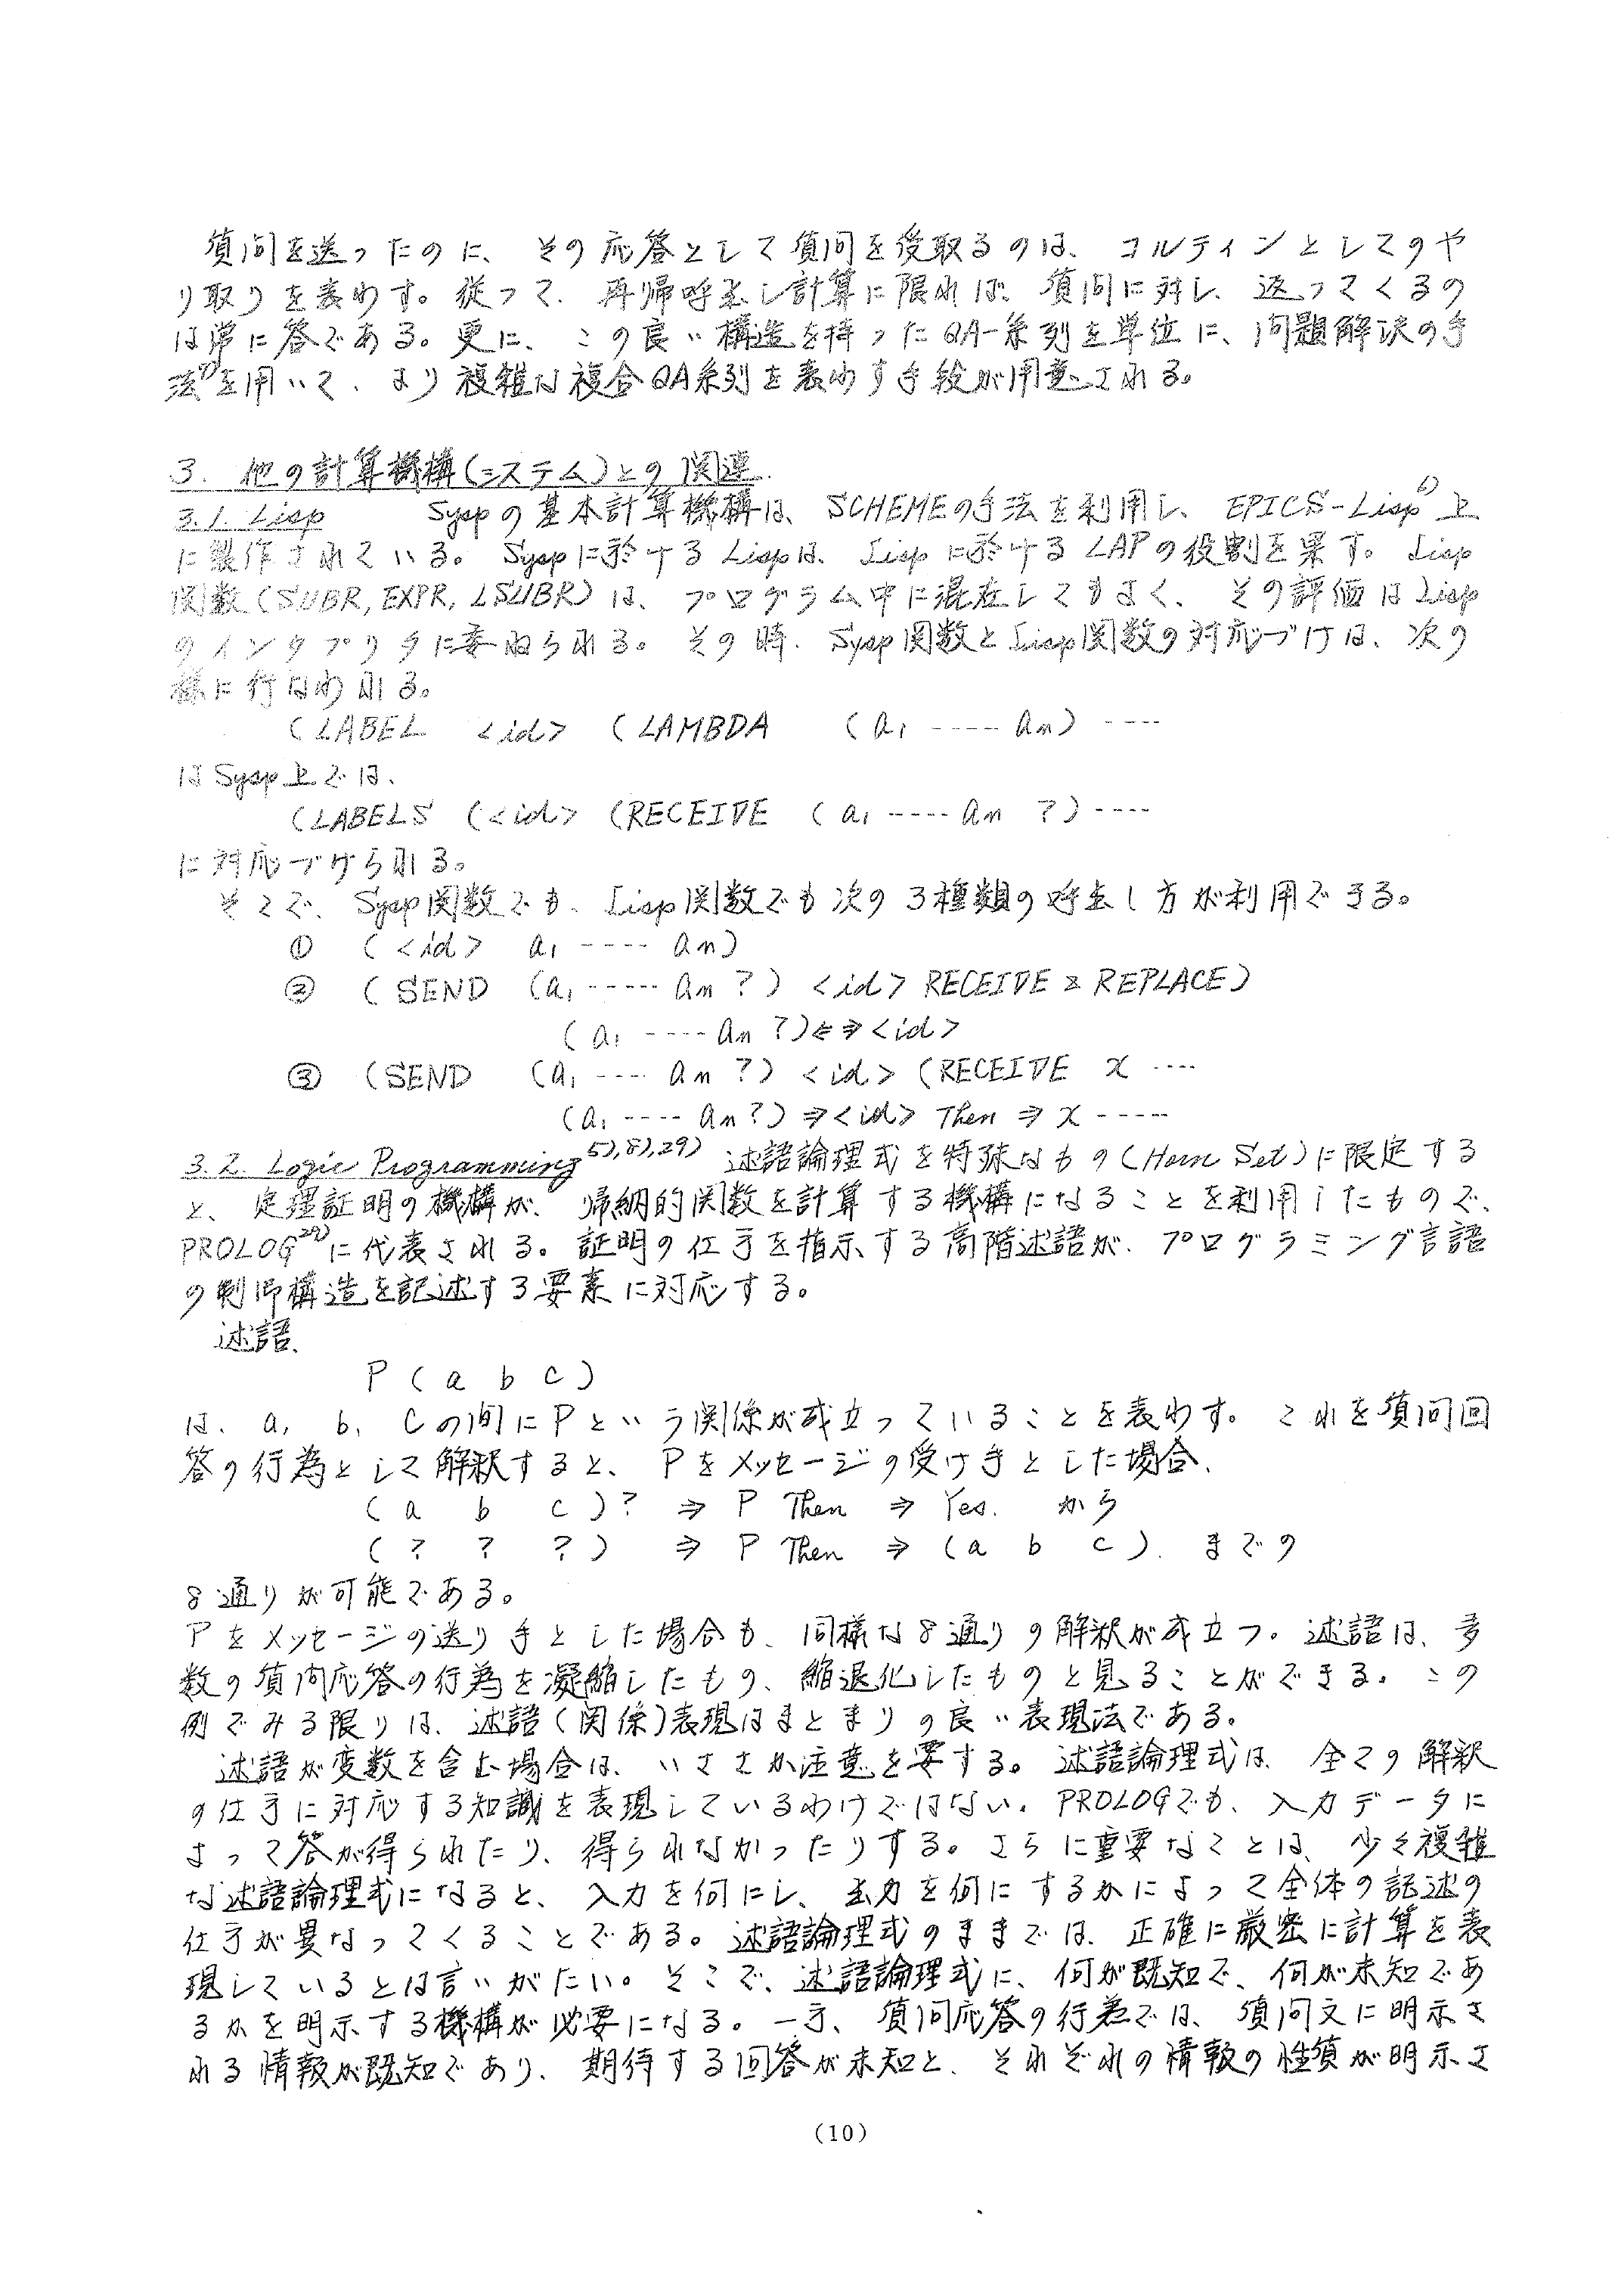 質問を送ったのに、その応答として質問を受取るのは、コルティンとしてのや
り取りを表わす。従って、再帰呼出し計算に限れば、質問に対し、返ってくるの
は常に答である。更に、この良い構造を持ったQA-系列を単位に、問題解決の手
法7)を用いて、より複雑な複合QA系列を表わす手段が用意される。
3. 他の計算機構(システム)との関連
3.1. Lisp Syspの基本計算機構は、SCHEMEの手法を利用し、EPICS-Lisp1)上
に製作されている。Syspに於けるLispは、Lispに於けるLAPの役割を果す。Lisp
関数(SUBR, EXPR, LSUBR)は、プログラム中に混在してもよく、その評価はLisp
のインタプリタに委ねられる。その時、Sysp関数とLisp関数の対応づけは、次の
様に行なわれる。
(LABEL <id> (LAMBDA (a₁ ---- an) ----
はSysp上では、
(LABELS (<id> (RECEIVE (a₁ ----- an ?) ----
に対応づけられる。
そこで、Sysp関数でも、Lisp関数でも次の3種類の呼出し方が利用できる。
① (<id> a₁ ---- an)
② (SEND (a₁ ----- an ?) <id> RECEIVE & REPLACE)
(a₁ ---- an ?)⇐⇒<id>
③ (SEND (a₁ ---- an ?) <id> (RECEIVE x ----
(a₁ ---- an ?) ⇒<id> Then ⇒ x -----
3.2. Logic Programming5),8),29) 述語論理式を特殊なもの(Horn Set)に限定する
と、定理証明の機構が、帰納的関数を計算する機構になることを利用したもので、
PROLOG29)に代表される。証明の仕方を指示する高階述語が、プログラミング言語
の制御構造を記述する要素に対応する。
述語、
P ( a b c )
は、a, b, cの間にPという関係が成立っていることを表わす。これを質問回
答の行為として解釈すると、Pをメッセージの受け手とした場合、
( a b c )? ⇒ P Then ⇒ Yes. から
( ? ? ? ) ⇒ P Then ⇒ (a b c). までの
8通りが可能である。
Pをメッセージの送り手とした場合も、同様な8通りの解釈が成立つ。述語は、多
数の質問応答の行為を凝縮したもの、縮退化したものと見ることができる。この
例でみる限りは、述語(関係)表現はまとまりの良い表現法である。
述語が変数を含む場合は、いささか注意を要する。述語論理式は、全ての解釈
の仕方に対応する知識を表現しているわけではない。PROLOGでも、入力データに
よって答が得られたり、得られなかったりする。さらに重要なことは、少々複雑
な述語論理式になると、入力を何にし、出力を何にするかによって全体の記述の
仕方が異なってくることである。述語論理式のままでは、正確に厳密に計算を表
現しているとは言いがたい。そこで、述語論理式に、何が既知で、何が未知であ
るかを明示する機構が必要になる。一方、質問応答の行為では、質問文に明示さ
れる情報が既知であり、期待する回答が未知と、それぞれの情報の性質が明示さ
(10)